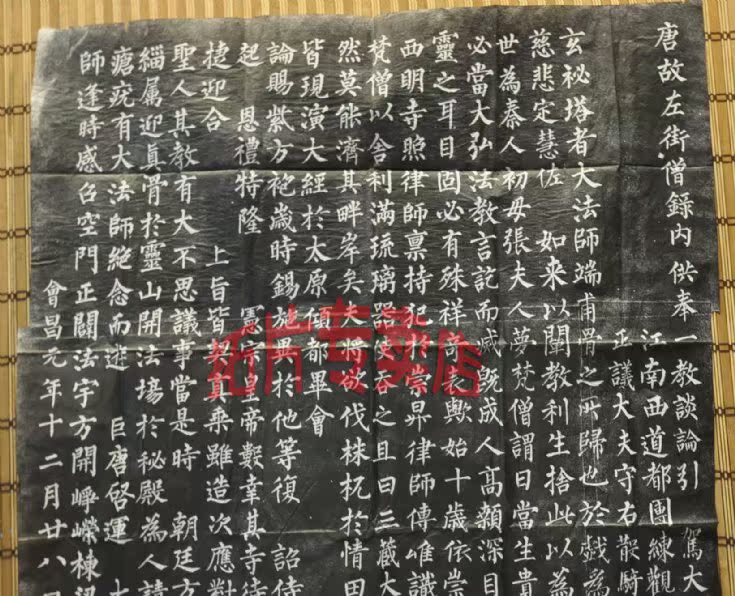 唐故左街僧録內供奉 一教談論引 駕大
江南西道都團練觀
正議大夫守右散騎
玄祕塔者大法師端甫骨之所歸也於戲為
慈悲定慧佐 如来以闡教利生捨此以為
世為秦人初母張夫人夢梵僧謂曰當生貴
必當大弘法教言訖而滅既成人高顙深目
靈之耳目固必有殊祥奇表歟始十歲依崇
西明寺照律師禀持犯於崇昇律師傳唯識
梵僧以舍利滿琉璃器使吞之且曰三藏大
然莫能濟其畔岸矣夫將欲伐株杌於情田
皆現演大經於太原傾都畢會
論賜紫方袍歲時錫施異於他等復 詔侍
起 恩禮特隆 憲宗皇帝數幸其寺待
捷迎合 上旨皆契真乘雖造次應對
聖人其教有大不思議事當是時 朝廷方
緇属迎真骨於靈山開法場於秘殿為人請
瘡疣有大法師絶念而逝 巨唐啓運 大
師逢時感召空門正闢法宇方開崢嶸棟梁
會昌元年十二月廿八日
拓片专卖店